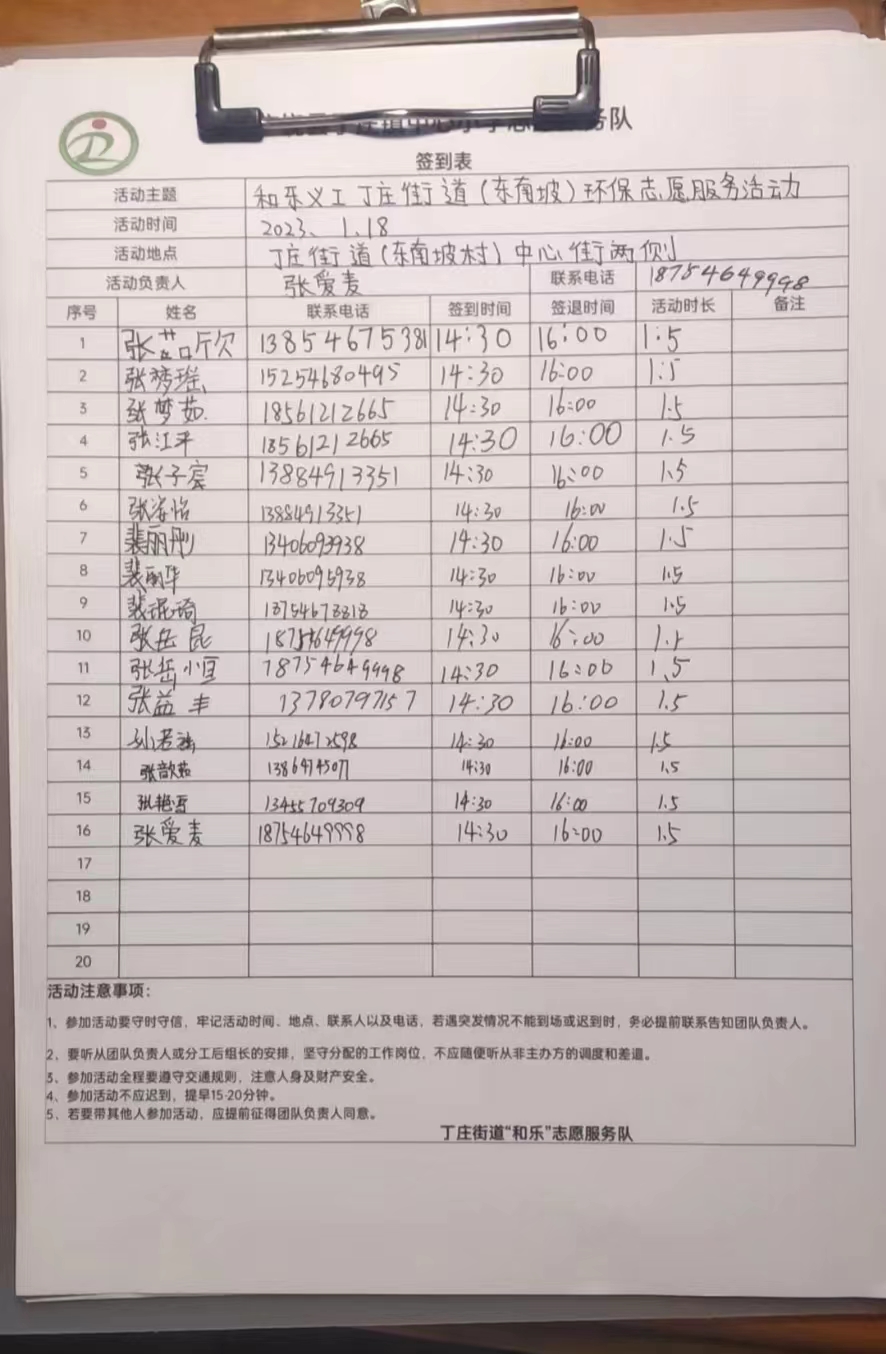 务队
签到表
活动主题 和乐义工丁庄街道(东南坡)环保志愿服务活动
活动时间 2023、1.18
活动地点 丁庄街道(东南坡村)中心街两侧
活动负责人 张爱麦 联系电话 18754649998
序号 姓名 联系电话 签到时间 签退时间 活动时长 备注
1 张 13854675381 14:30 16:00 1:5
2 张梦瑶 15254680495 14:30 16:00 1:5
3 张梦茹. 18561212665 14:30 16:00 1.5
4 张江平 18561212665 14:30 16:00 1.5
5 张子宸 13884913351 14:30 16:00 1.5
6 张 怡 13884913351 14:30 16:00 1.5
7 裴丽彤 14:30 16:00 1.5
8 裴丽华 13406095938 14:30 16:00 1.5
9 裴琨琦 14:30 16:00 1.5
10 张岳昆 18754649998 14:30 16:00
11 张岳恒 18754649998 14:30 16:00 1.5
12 张益丰 13780797157 14:30 16:00 1.5
13 孙若 15216472598 14:30 16:00 1.5
14 张歆茹 13864745077 14:30 16:00 1.5
15 张艳雪 13455709309 14:30 16:00 1.5
16 张爱麦 18754649998 14:30 16:00 1.5
17
18
19
20
活动注意事项:
1、参加活动要守时守信,牢记活动时间、地点、联系人以及电话,若遇突发情况不能到场或迟到时,务必提前联系告知团队负责人。
2、要听从团队负责人或分工后组长的安排,坚守分配的工作岗位,不应随便听从非主办方的调度和差遣。
3、参加活动全程要遵守交通规则,注意人身及财产安全。
4、参加活动不应迟到,提早15-20分钟。
5、若要带其他人参加活动,应提前征得团队负责人同意。
丁庄街道“和乐”志愿服务队